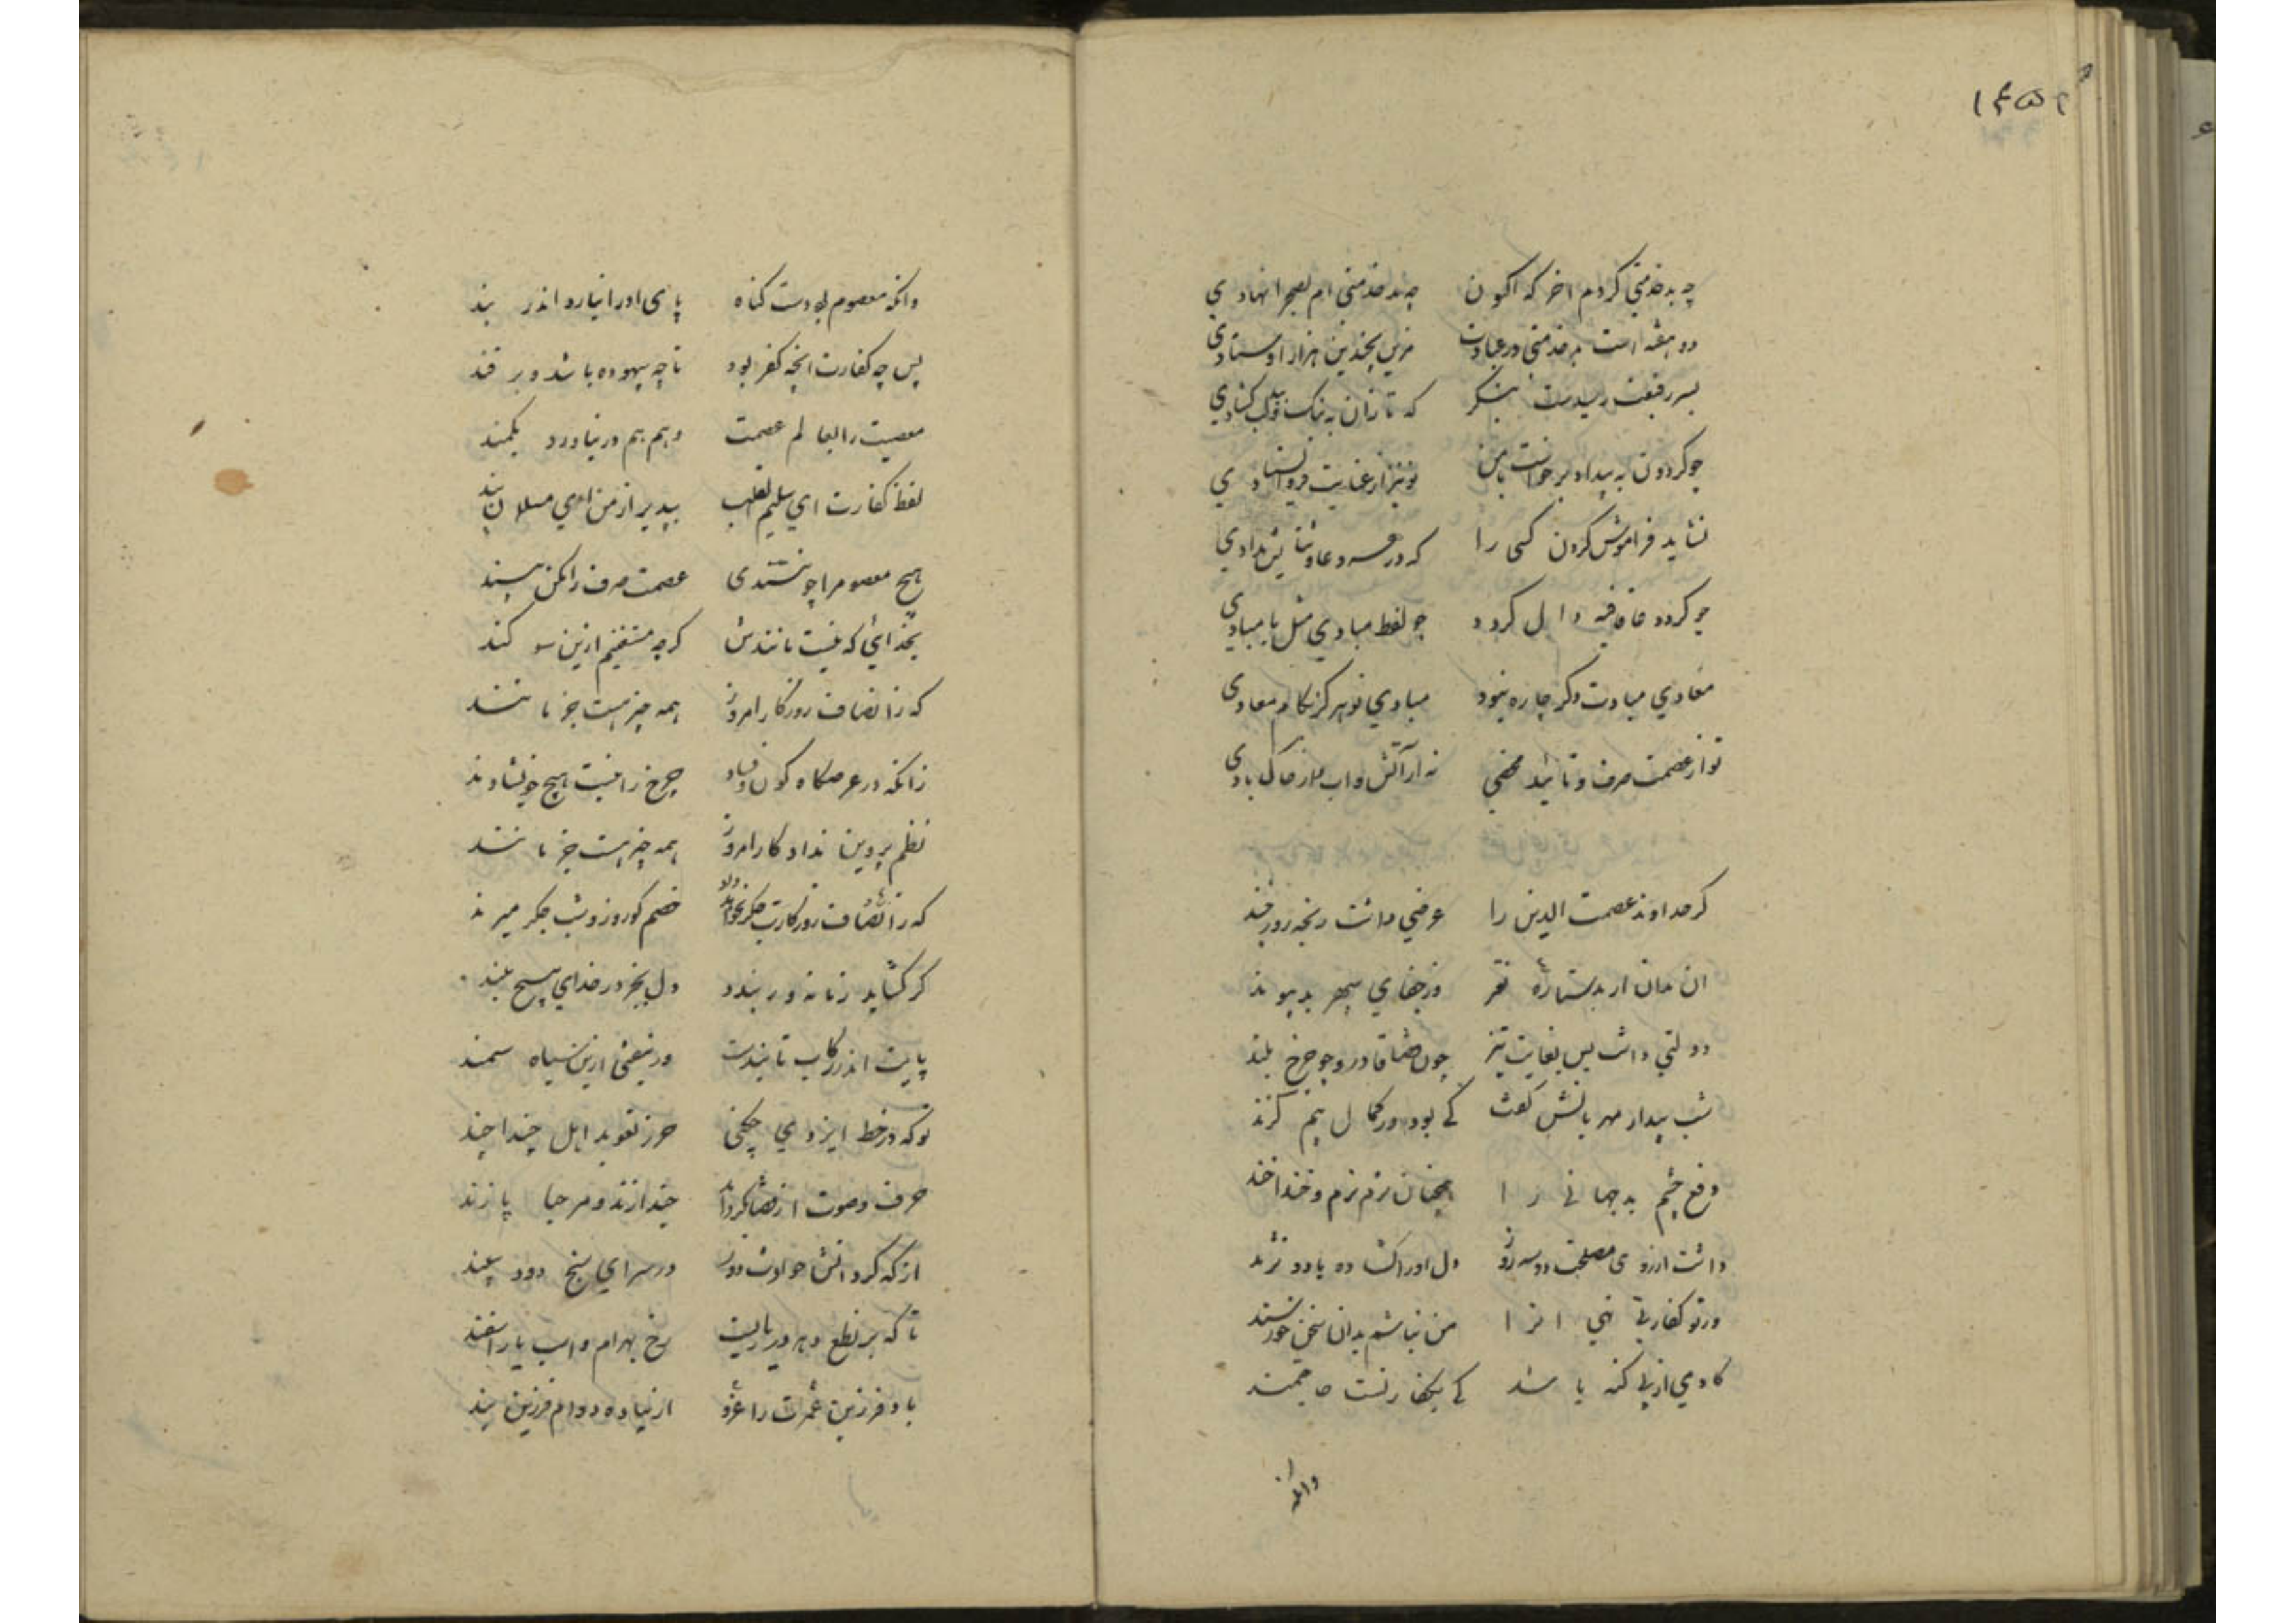 چه بدخدمتی کردم اخر که اکنون چه بدخدمتی ام بصحرا نهادی
دو هفته است بدخدمتی در عیادت مزین بچندین هزار اوستادی
بسر رقیعت رسیدست بنکر که تا زان به نیک و بد لب کشادی
چو کردون به بیداد برخواست بامن تو نیز از عنایت فرو ایستادی
نشاید فراموش کردن کسی را که در درس و دعا و ثنا یش بدادی
چو کردد قافیه دال کردد چو لفظ مبادی مثل یا مبادی
معادی مبادت دکر چاره نبود مبادی تو هرکز بکام معادی
تو از عصمت صرف و تایید محضی نه از آتش و اب و از خاک بادی
کر خداوند عصمت الدین را عرضی داشت رنجه روزی چند
ان مدان از بد ستاره نقر وز جفای سپهر بد پیوند
دولتی داشت بس بغایت تیز چون قضا قادر و چو چرخ بلند
شب بیدار مهربانش کفت کی بود در کمال بیم کزند
دفع چشم بد جهانی را همچنان نرم نرم و خندا خند
داشت ارزوی مصلحت دو سه روز دل او را کشاده یا دو نژند
ور تو کفارتی نهی انرا من نباشم بدان سخن خورسند
کادمی از پی کنه باشد کی بکفارتست حاجتمند
وانکه
وانکه معصوم بودست کناه پای او را نیارد اندر بند
پس چه کفارت انچه کفر بود تا چه بیهوده باشد و برفند
معصیت را بعالم عصمت وهم هم درنیاورد بکمند
لفظ کفارت ای سلیم القلب بپدیر از من ای مسلمان پند
هیچ معصوم را چو نپسندی عصمت صرف را مکن پسند
بخدائی که نیست مانندش کرچه مستغنیم ازین سوکند
که ز انصاف روزکار امروز همه چیز هست جز مانند
زانکه در عرصکاه کون و فساد چرخ را نیست هیچ خویشاوند
نظم پروین نداد کار امروز همه چیز هست جز مانند
که ز انصاف روزکارت جکر نخواند داد خصم کو روز و شب جکر میرند
کر کشاید زمانه ور بندد دل بجز در خدای هیچ مبند
پایت اندر رکاب تاییدست ور بیفتی ازین سیاه سمند
تو که در خط ایزدی چکنی حرز تعوید اهل چندا چند
حرف و صوت از قضا بکرداند چند ازند و مرحبا پا زند
از که کرد اتش حوادث دور در سرای سپنج دود سپند
تا که بر نطع دهر در بازیست رخ بهرام و اسب یا اسفند
باد فرزین عمرت را عزو از پیاده دوام فرزین بند